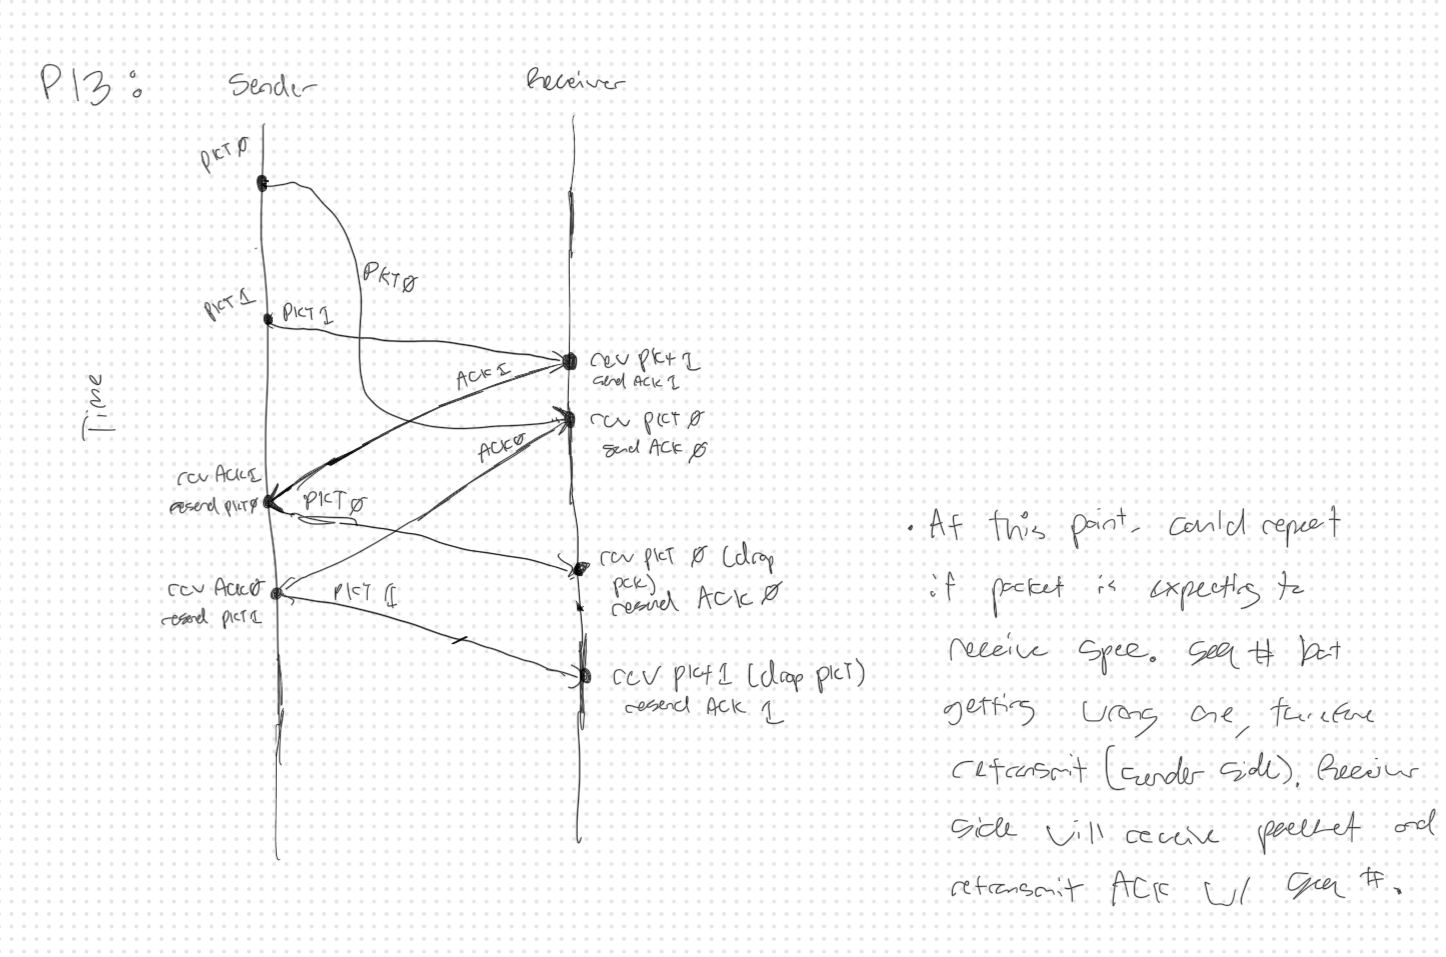 P13:
Sender
Receiver
PKT0
PKT0
PKT1
PKT1
rcv pkt 1
send ACK 1
ACK1
Time
rcv pkt 0
send ACK 0
ACK0
rcv ACK1
resend pkt0
PKT0
rcv pkt 0 (drop
pck)
resend ACK 0
rcv ACK0
resend pkt1
PKT 1
rcv pkt 1 (drop pkt)
resend ACK 1
• At this point, could repeat
if packet is expecting to
receive spec. seq # but
getting wrong one, therefore
retransmit (sender side). Receiver
side will receive packet and
retransmit ACK w/ seq #.